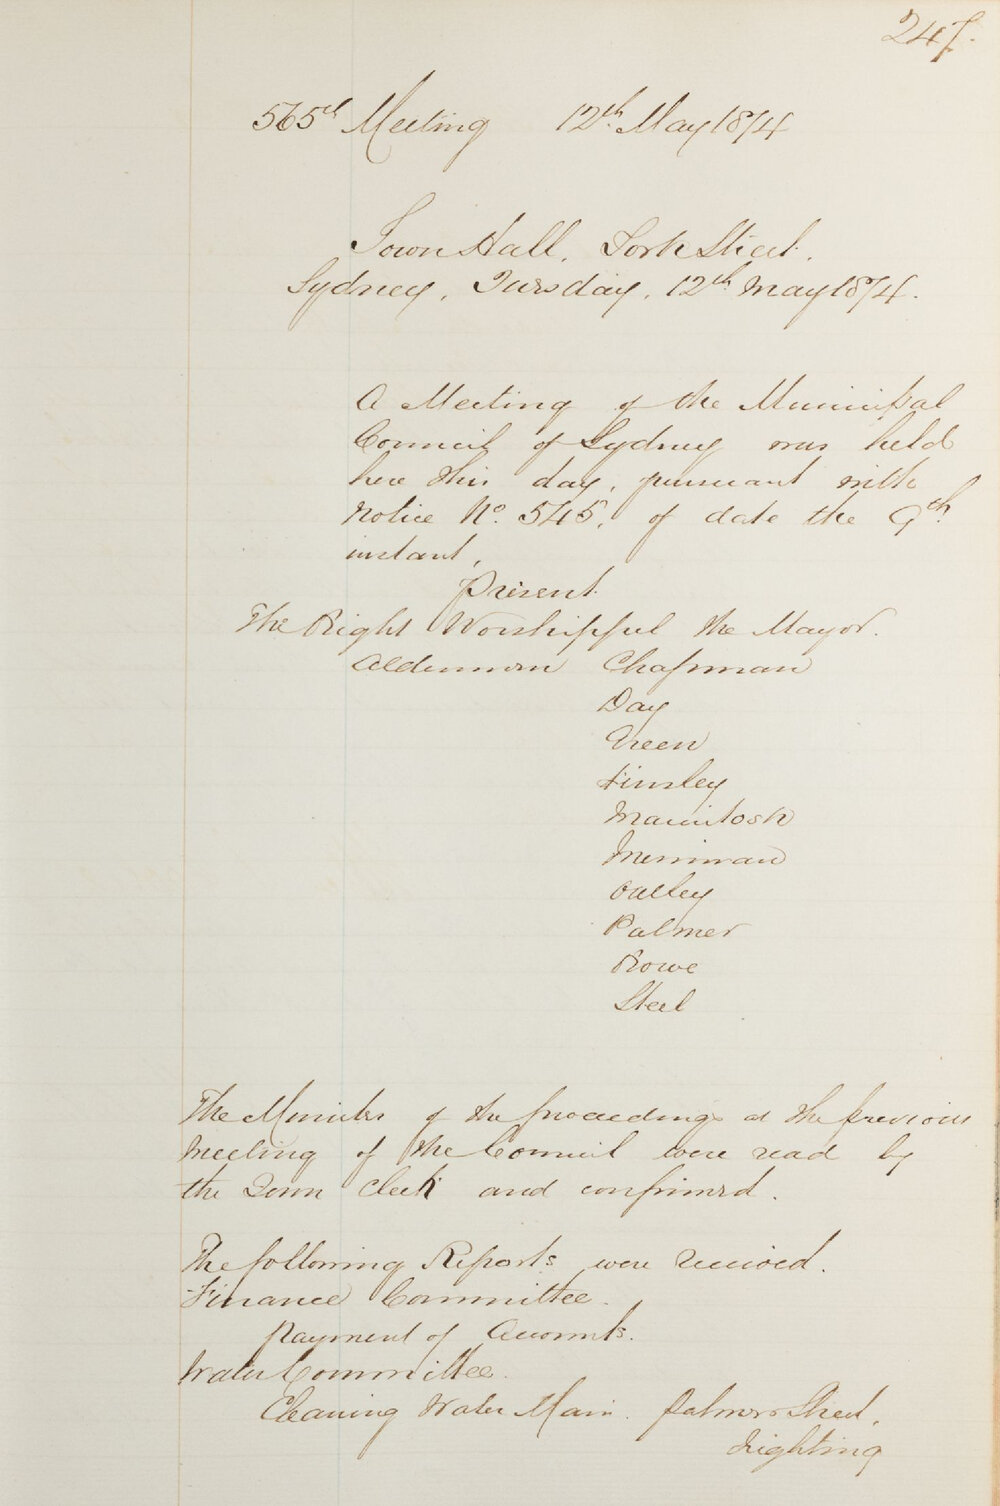 247.
565th Meeting 12th May 1874
Town Hall, York Street,
Sydney, Tuesday, 12th May 1874.
A Meeting of the Municipal
Council of Sydney was held
here this day, pursuant with
Notice No. 545, of date the 9th
instant,
Present
The Right Worshipful the Mayor.
Aldermen Chapman
Day
Green
Kinsley
Macintosh
Merriman
Oatley
Palmer
Rowe
Steel
The Minutes of the proceedings at the previous
Meeting of the Council were read by
the Town Clerk and confirmed.
The following Reports were received.
Finance Committee.
Payment of Accounts.
Water Committee.
Cleaning Water Main. Palmer Street,
Lighting